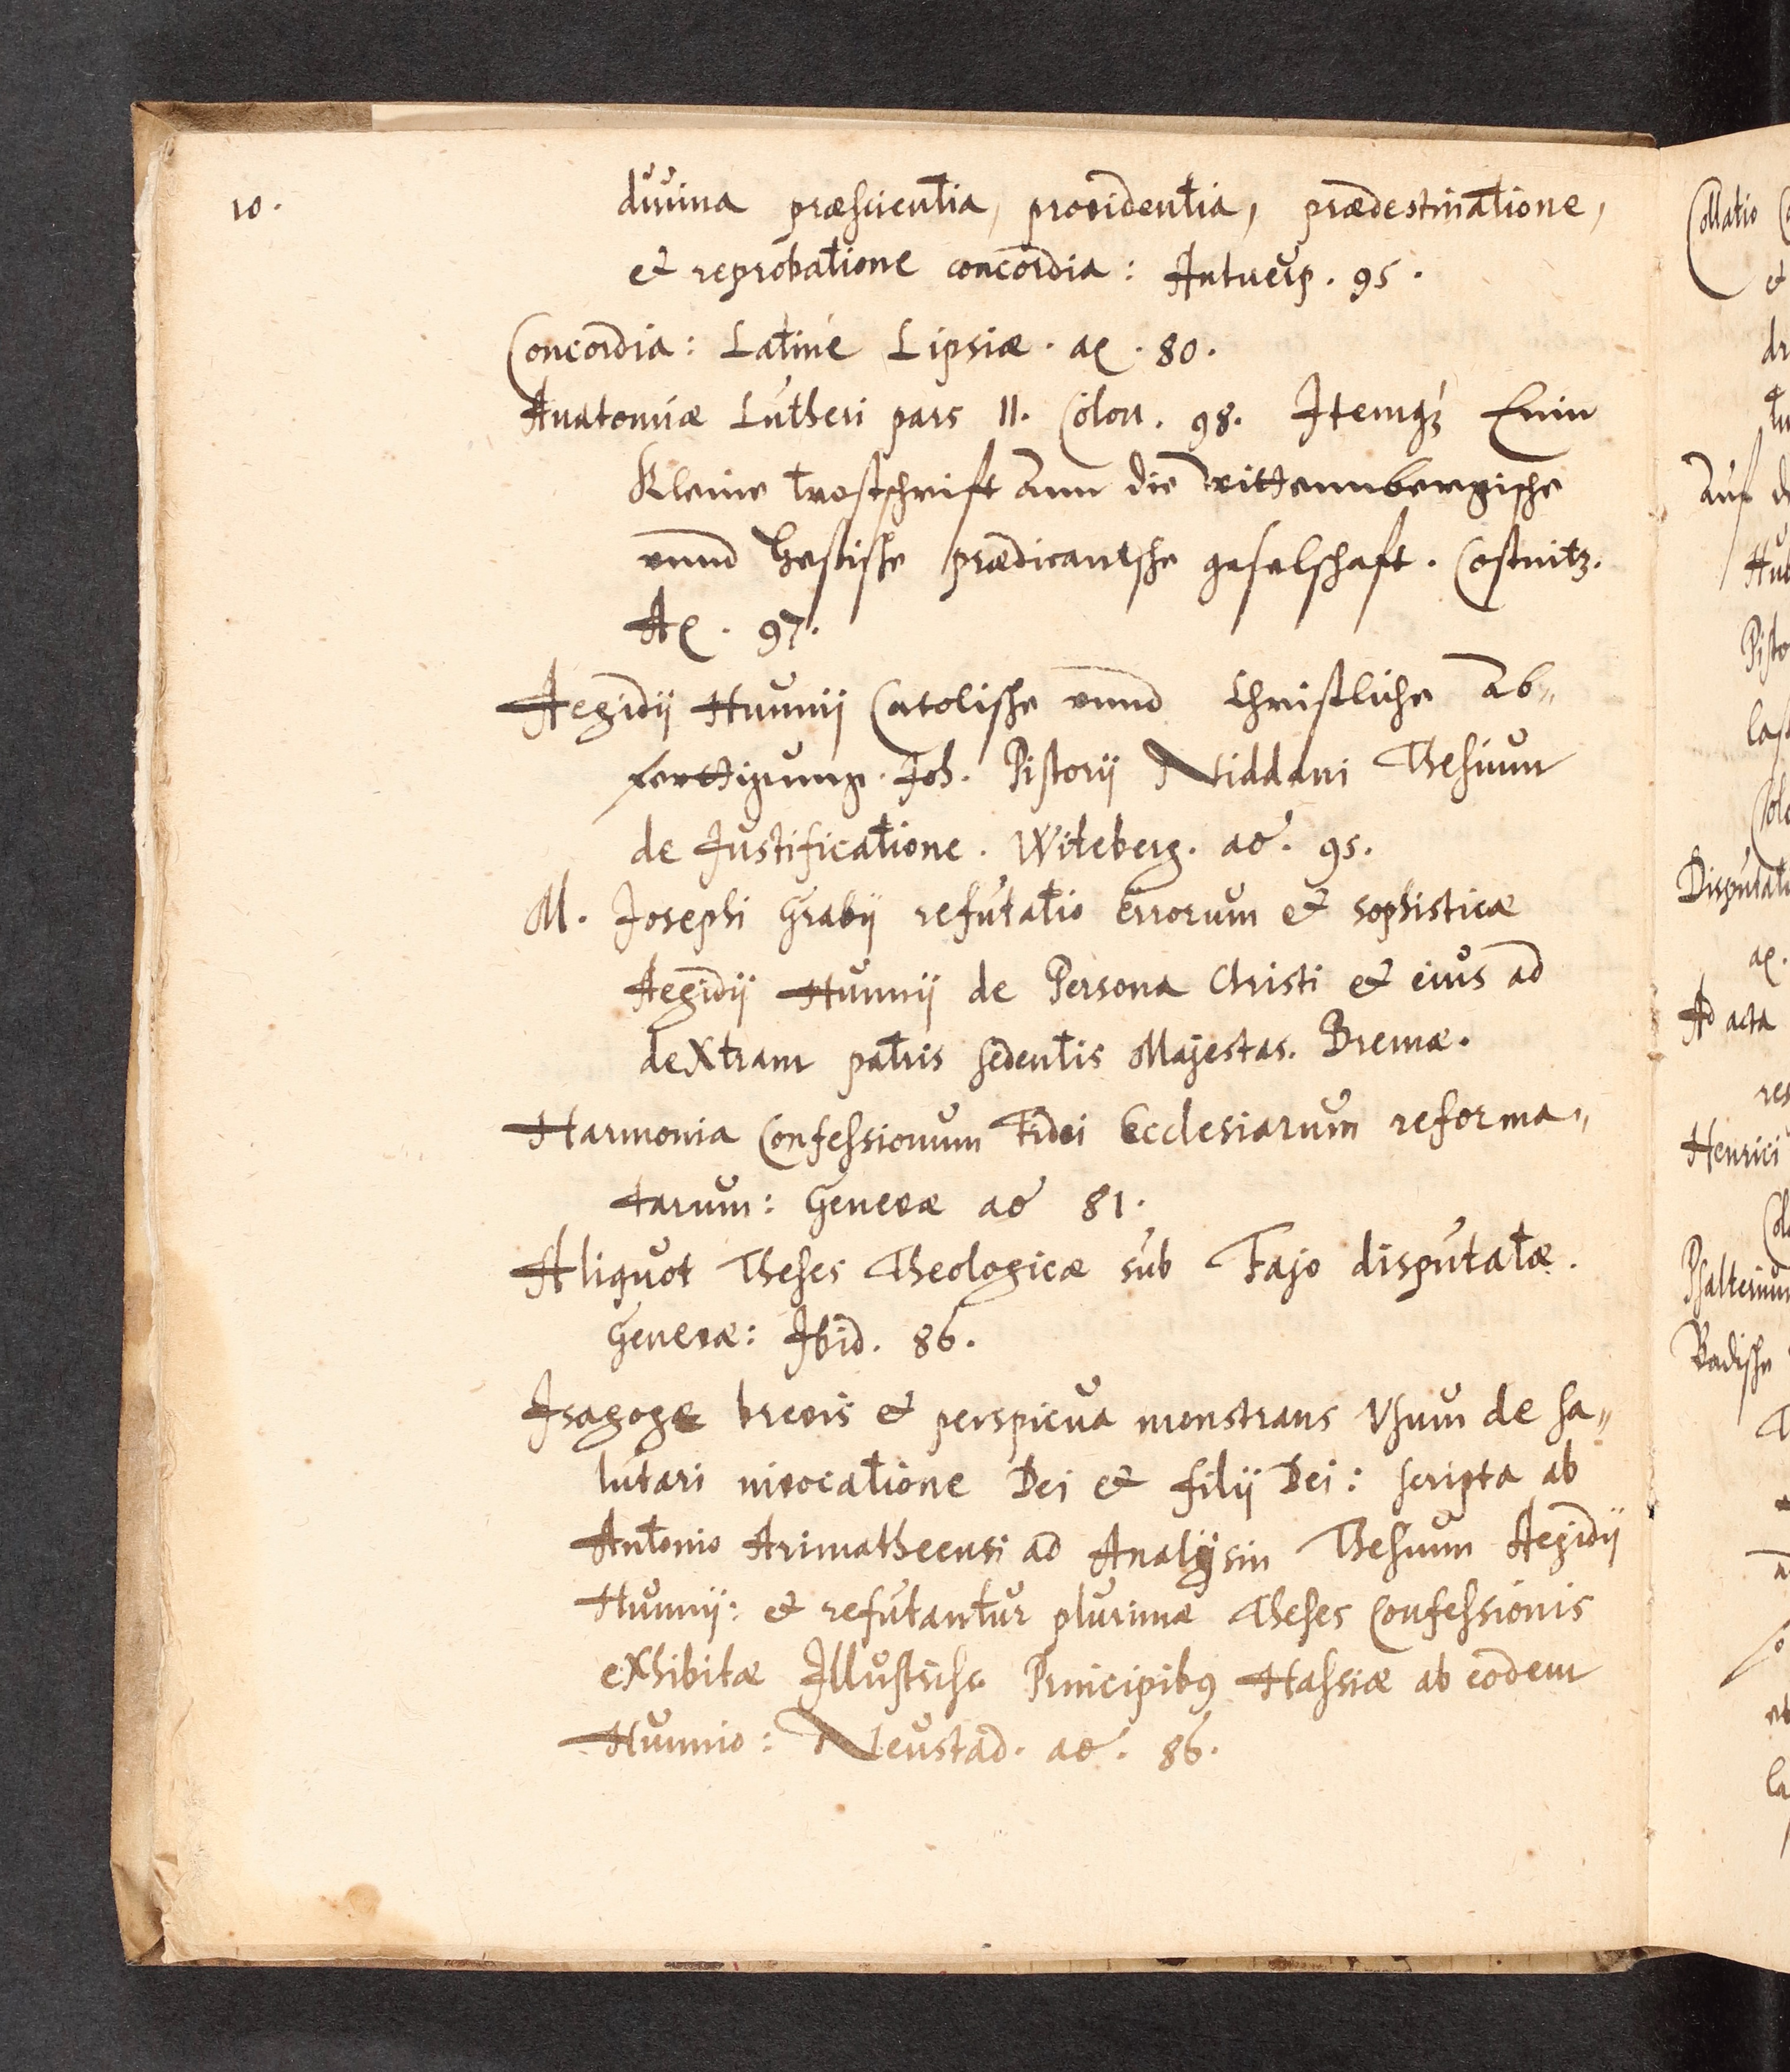 10.
divina præscientia, providentia, prædestinatione,
et reprobatione concordia: Antuerp. 95.
Concordia: Latine Lipsiæ. aō. 80.
Anatomiæ Lutheri pars II. Colon. 98. Itemq́ Ein
Kleine trostschrift ann die wittennbergische
vnnd Hessische prædicantsche geselschaft. Costnitz.
Aō. 97.
Aegidij Hunnij Catolische vnnd Christliche Ab„
fertigung. Joh. Pistorij Niddani Thesium
de Justificatione. Witeberg. ao. 95.
M. Josephi Grabij refutatio errorum et sophisticæ
Aegidij Hunnij de Persona Christi et eius ad
dextram patris sedentis Majestas. Bremæ.
Harmonia Confessionum Fidei Ecclesiarum reforma„
tarum: Genevæ ao 81.
Aliquot Theses Theologicæ sub Fajo disputatæ.
Genevæ: Ibid. 86.
Isagoge brevis et perspicua monstrans Vsum de sa„
lutari invocatione Dei et filij Dei: scripta ab
Antonio Arimatheensi ad Analijsin Thesium Aegidij
Hunnij: et refutantur plurimæ Theses Confessionis
exhibitæ Illustriss. Principibus Hassiæ ab eodem
Hunnio: Neustad. ao. 86.
Collatio
et
Auf
Pisto
Disputati
ao.
Ad acta
res
Henrici
Psalterium
Badische